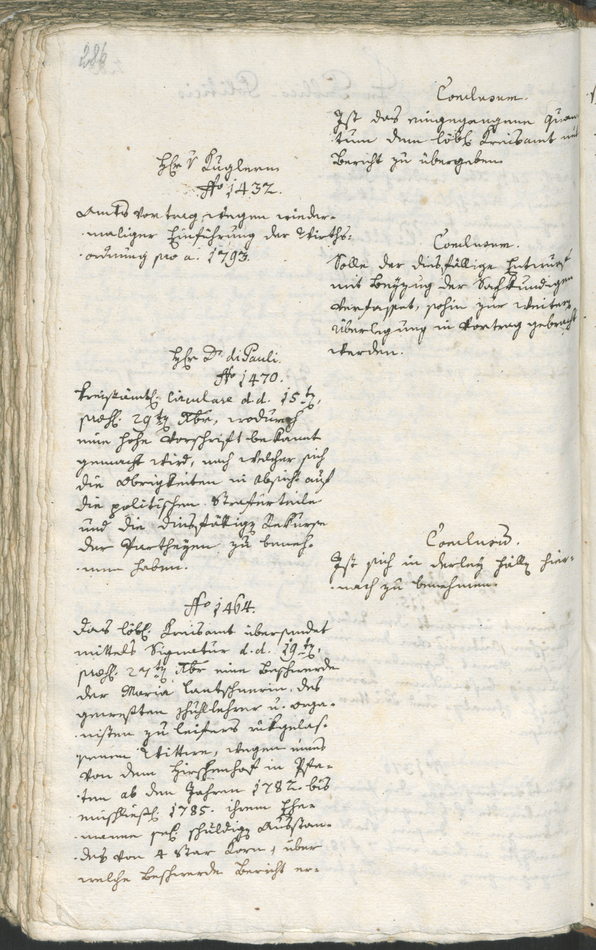 286
Conclusum.
Ist das eingegangene Quan-
tum dem löbl. Kreisamt mit
Bericht zu übergeben.
Hr. v. Kuglern
No 1432.
Amts Vortrag wegen wieder-
maliger Einführung der Wirths-
ordnung pro a. 1793.
Conclusum.
Solle der diesfällige Entwurf
mit Beyzug der Sachkundigen
verfasset, sohin zur weitern
Überlegung in Vortrag gebracht
werden.
Hr. Dr. di Pauli.
No 1470.
Kreisämtl. Circulare d. d. 15ten,
praes. 29ten Xbr., wodurch
eine hohe Vorschrift bekannt
gemacht wird, nach welcher sich
die Obrigkeiten in Absicht auf
die politischen Strafurteile
und die diesfällige Rekurse
der Partheyen zu beneh-
men haben.
Conclusum.
Ist sich in derley Fälle hier-
nach zu benehmen.
No 1464.
Das löbl. Kreisamt übersendet
mittels Signatur d. d. 19ten,
praes. 27ten Xbr. eine Beschwerde
der Maria Lantschnerin, des
gewesten Schullehrer u. orga-
nisten zu Leifers rükgelas-
senen Wittwe, wegen eines
von dem Hirschenhof in Pfa-
ten ab den Jahren 1782. bis
einschließl. 1785. ihrem Ehe-
manne sel. schuldige Ausstan-
des von 4 Star Korn, über
welche Beschwerde Bericht er-